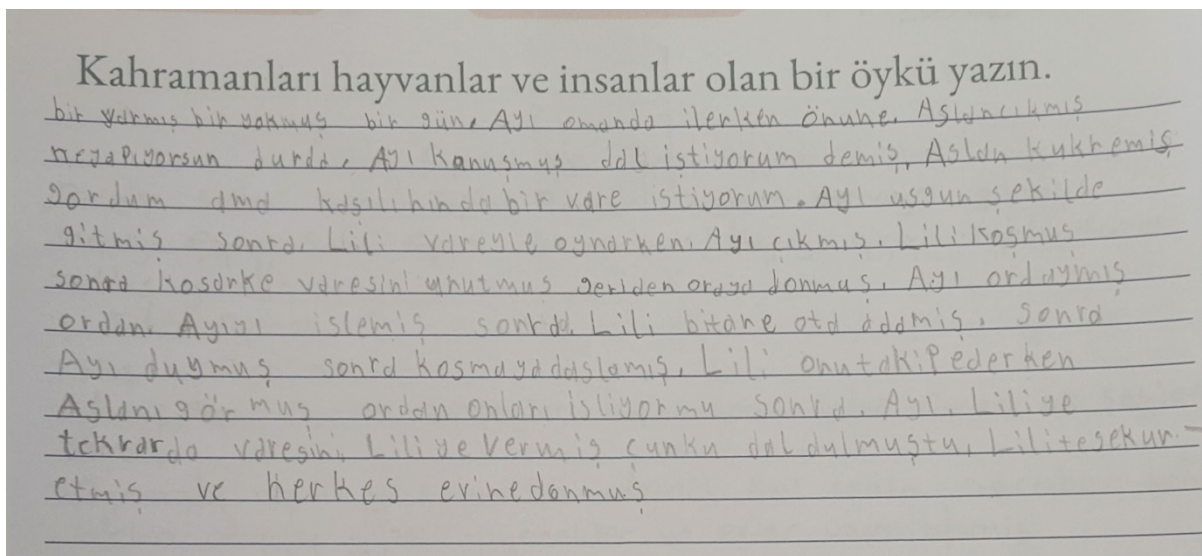 Kahramanları hayvanlar ve insanlar olan bir öykü yazın.
bir varmış bir yokmuş bir gün. Ayı omanda ilerken önune. Aslancıkmış
neyapıyorsun durda. Ayı kanuşmuş dal istiyorum demiş. Aslan kukremiş
gordum ama kaşılıhında bir vare istiyorum. Ayı usgun şekilde
gitmiş sonra. Lili vareyle oynarken. Ayı çıkmış. Lili koşmus
sonra kosarke varesini unutmus geriden oraya donmuş. Ayı ordaymış
ordan. Ayıyı islemiş sonrda. Lili bitane ota adamiş. sonra
Ayı duymuş sonra kosmaya daslamış. Lili onu takip ederken
Aslanı görmuş ordan onları isliyormu sonra. Ayı. Liliye
tekrarda varesini Liliye vermiş çunku dal dulmuştu. Lili teşekur
etmiş ve herkes evine donmuş